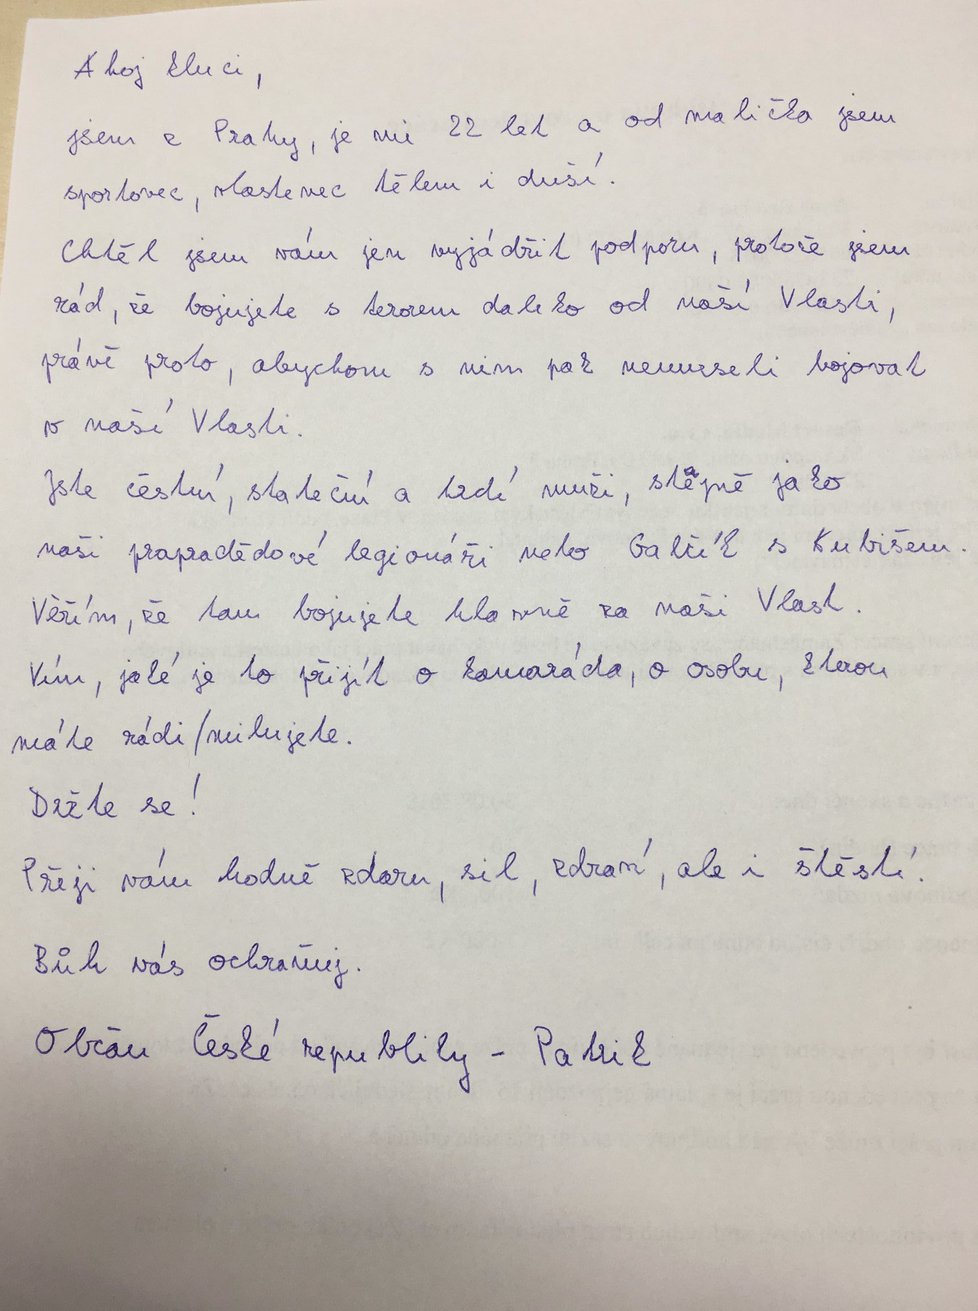 Ahoj kluci,
jsem z Prahy, je mi 22 let a od malička jsem
sportovec, vlastenec tělem i duší.
Chtěl jsem vám jen vyjádřit podporu, protože jsem
rád, že bojujete s terorem daleko od naší Vlasti,
právě proto, abychom s ním pak nemuseli bojovat
v naší Vlasti.
Jste čestní, stateční a hrdí muži, stejně jako
naši prapradědové legionáři nebo Gabčík s Kubišem.
Věřím, že tam bojujete hlavně za naši Vlast.
Vím, jaké je to přijít o kamaráda, o osobu, kterou
máte rádi/milujete.
Držte se!
Přeji vám hodně zdaru, sil, zdraví, ale i štěstí.
Bůh vás ochraňuj.
Občan České republiky - Patrik